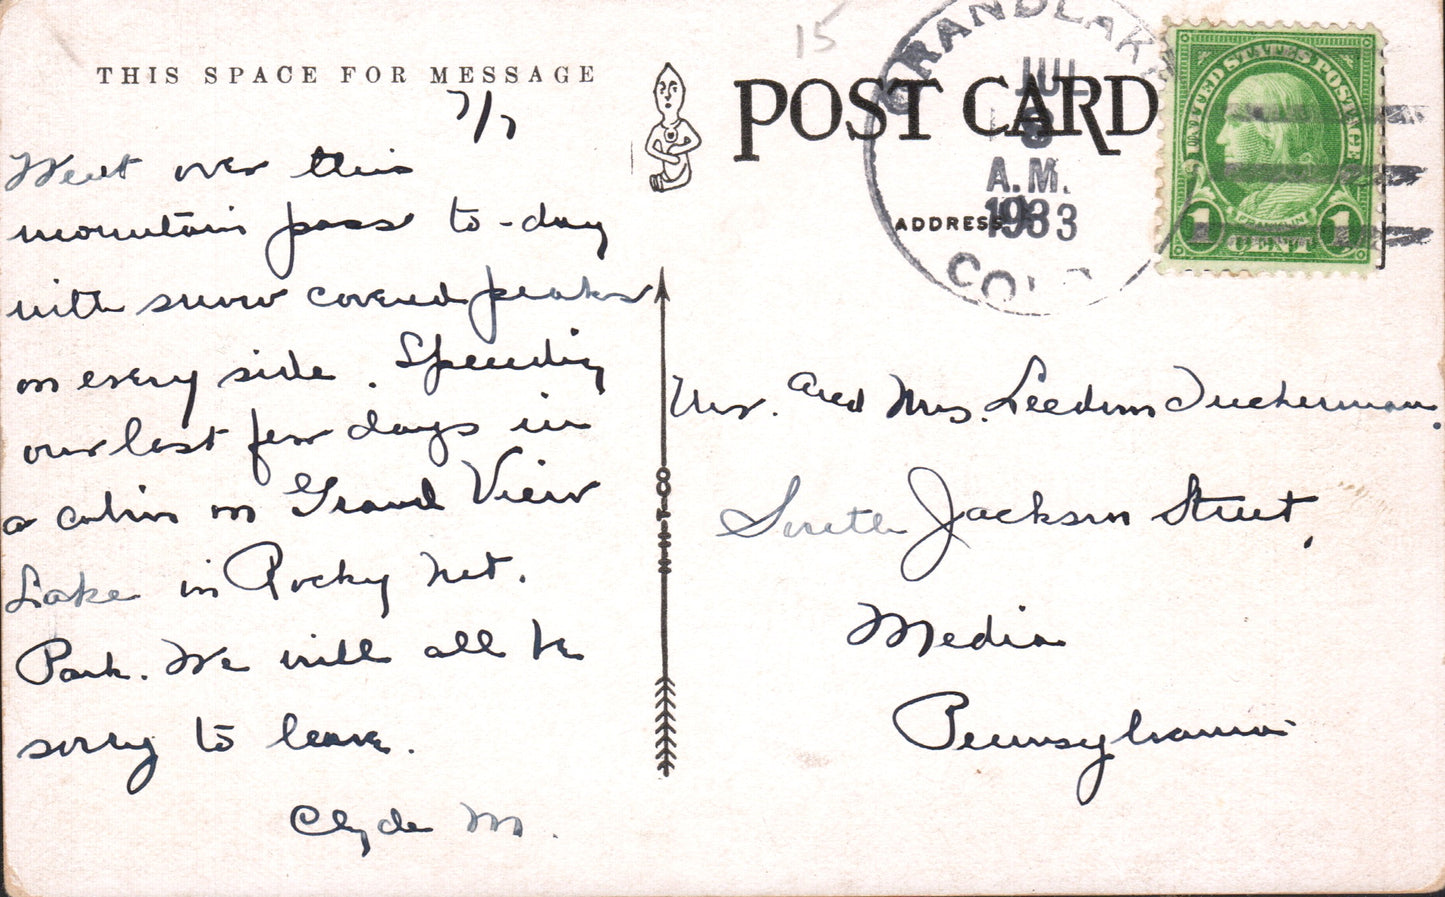 THIS SPACE FOR MESSAGE
7/7
Went over this
mountain pass to-day
with snow covered peaks
on every side. Spending
our last few days in
a cabin on Grand View
Lake in Rocky Nat.
Park. We will all be
sorry to leave.
Clyde M.
HHT Co
15
POST CARD
ADDRESS
GRAND LAKE
JUL
8
A.M.
1933
COLO
UNITED STATES POSTAGE
FRANKLIN
1 CENT 1
Mr. and Mrs. Leedom Tuckerman.
South Jackson Street,
Media
Pennsylvania